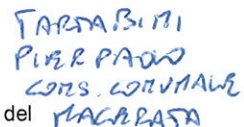 TARTABINI
PIER PAOLO
CONS. COMUNALE
del MACERATA